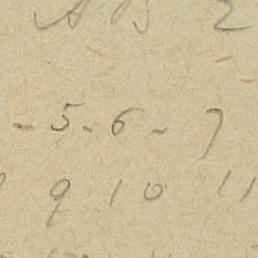 A B 2
- 5 - 6 - 7
9 10 11